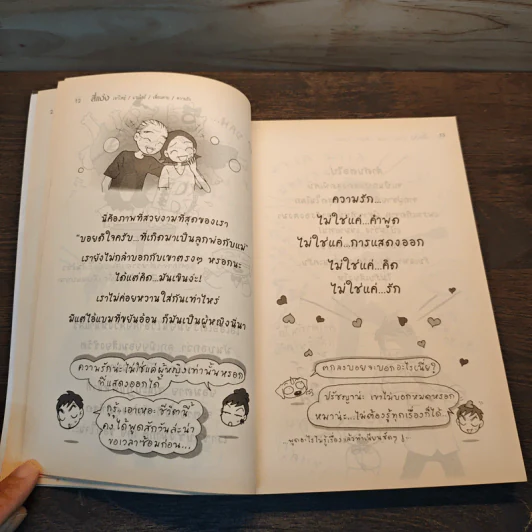 นี่คือภาพที่สวยงามที่สุดของเรา
"บอยดีใจครับ...ที่เกิดมาเป็นลูกพ่อกับแม่"
เรายังไม่กล้าบอกกับเขาตรงๆ หรอกนะ
ได้แต่คิด...มันเขินง่ะ!
เราไม่ค่อยหวานใส่กันเท่าไหร่
มีแต่ไอ้แบมที่ขยันอ้อน ก็มันเป็นผู้หญิงนี่นา
ความรักน่ะไม่ใช่แต่ผู้หญิงเท่านั้นหรอก
ที่แสดงออกได้
กูรู้...เอาเหอะ ชีวิตนี้
คงได้พูดสักวันล่ะน่า
ขอเวลาซ้อมก่อน...
ความรัก...
ไม่ใช่แค่...คำพูด
ไม่ใช่แค่...การแสดงออก
ไม่ใช่แค่...คิด
ไม่ใช่แค่...รัก
ตกลงบอยจะบอกอะไรเนี่ย?
ปรัชญาน่ะ เขาไม่บอกหมดหรอก
หมาน่ะ...ไม่ต้องรู้ทุกเรื่องก็ได้...